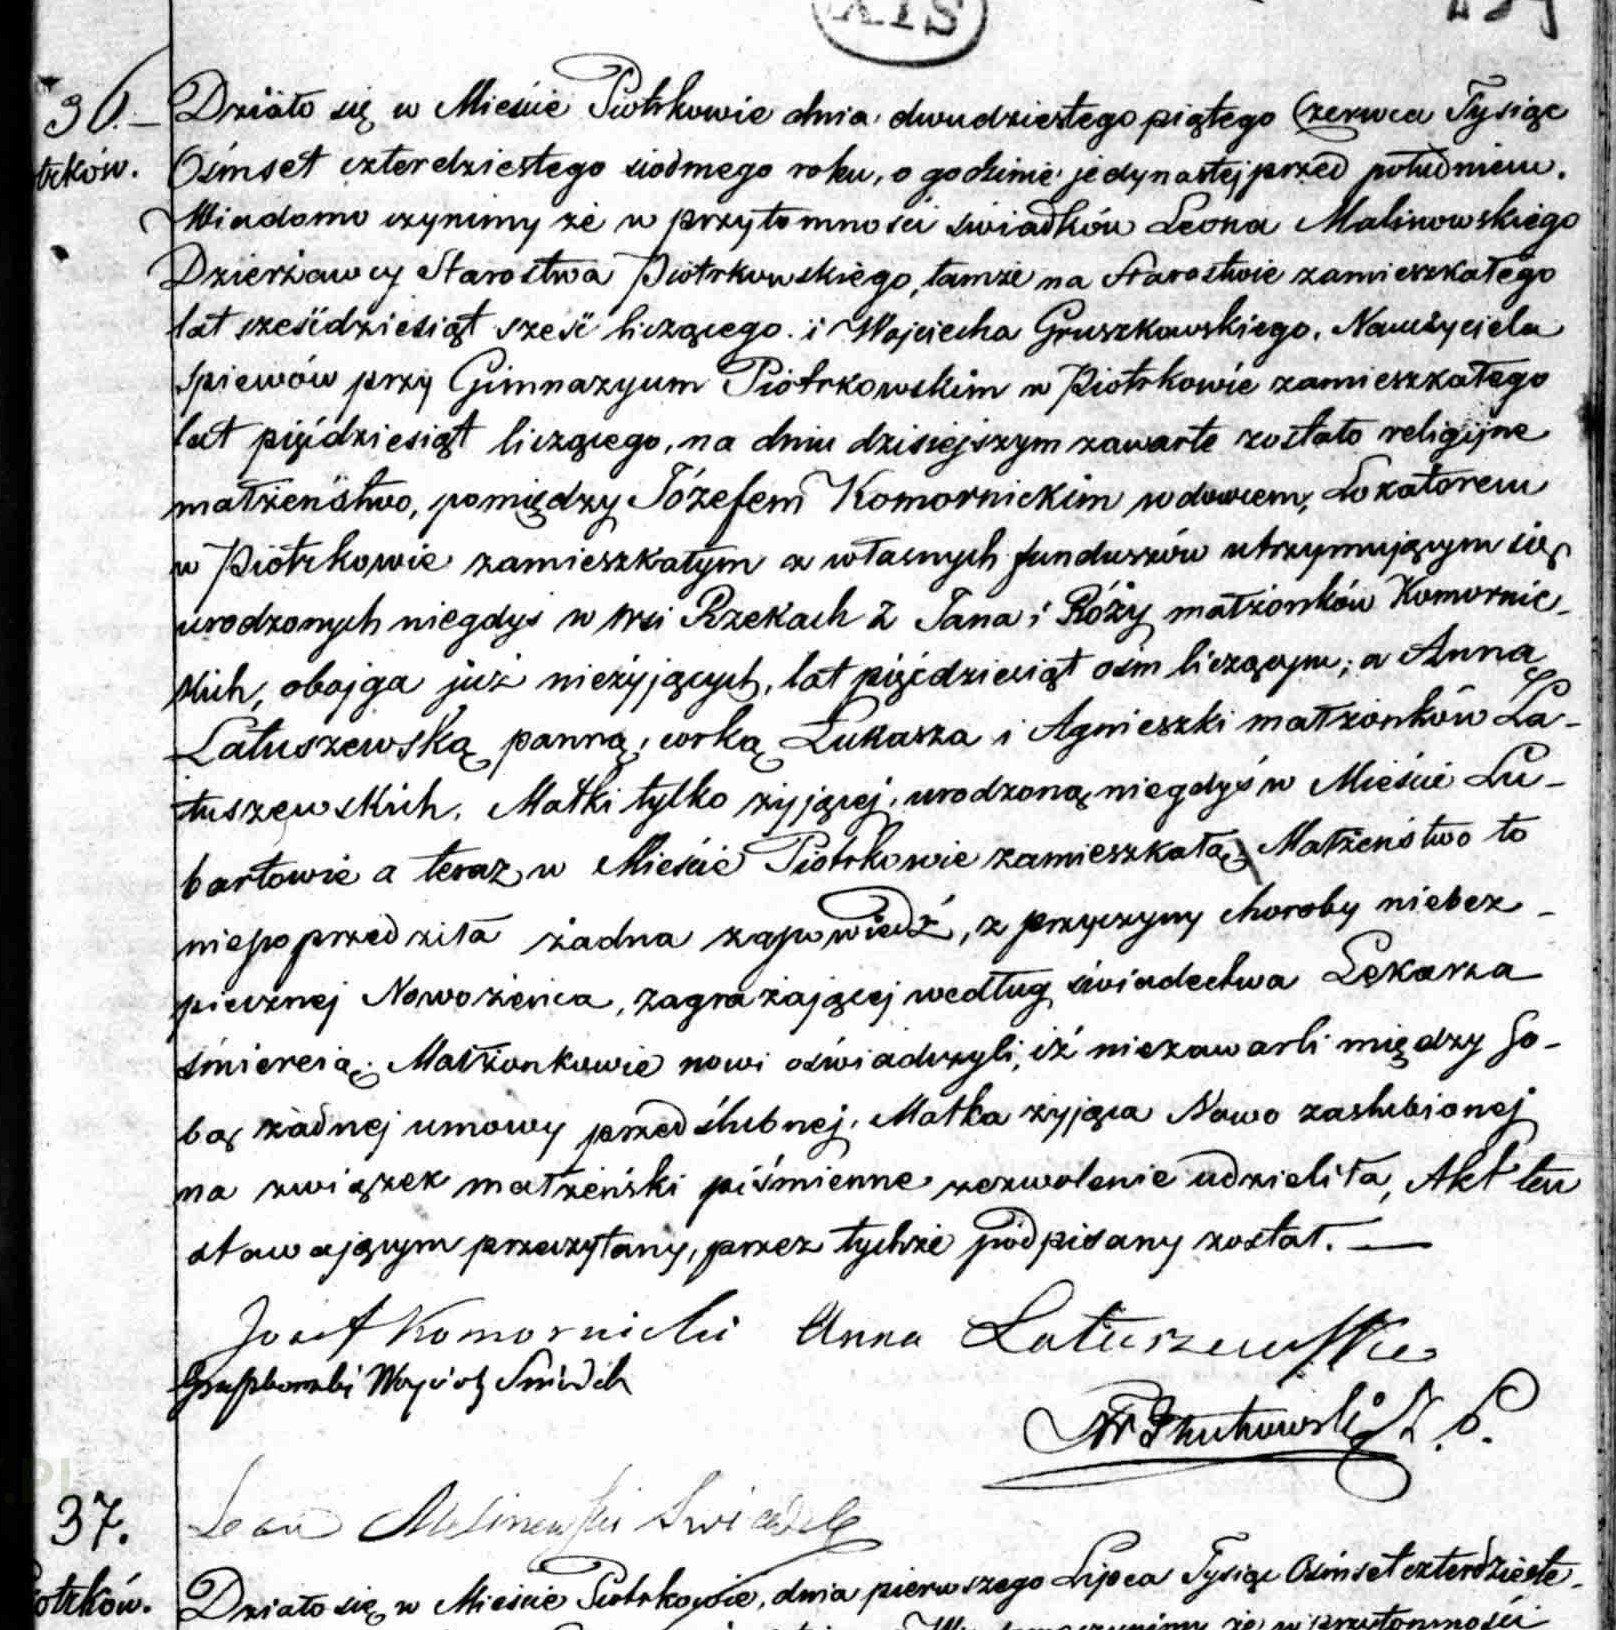 36.
trków.
Działo się w Mieście Piotrkowie dnia dwudziestego piątego Czerwca Tysiąc
Ośmset czterdziestego siodmego roku, o godzinie jedynastej przed południem.
Wiadomo czynimy że w przytomności świadków Leona Malinowskiego
Dzierżawcy Starostwa Piotrkowskiego, tamże na Starostwie zamieszkałego
lat sześćdziesiąt sześć liczącego i Wojciecha Gruszkowskiego, Nauczyciela
Spiewów przy Gimnazyum Piotrkowskim w Piotrkowie zamieszkałego
lat pięćdziesiąt liczącego, na dniu dzisiejszym zawarte zostało religijne
małżeństwo, pomiędzy Józefem Komornickim wdowcem, Lokatorem
w Piotrkowie zamieszkałym z własnych funduszów utrzymującym się,
urodzonych niegdyś w wsi Rzekach z Jana i Róży małżonków Komornic-
kich, obojga już nieżyjących, lat pięćdziesiąt ośm liczącym; a Anną
Łatuszewską panną, corką Łukasza i Agnieszki małżonków Ła-
tuszewskich. Matki tylko żyjącej, urodzoną niegdyś w Mieście Lu-
bartowie a teraz w Mieście Piotrkowie zamieszkałą, Małżeństwo to
niepoprzedziła żadna zapowiedź, z przyczyny choroby niebez-
piecznej Nowożeńca, zagrażającej według świadectwa Lekarza
śmiercią. Małżonkowie nowi oświadczyli, iż niezawarli między So-
bą żadnej umowy przedślubnej. Matka żyjąca Nowo zaslubionej
na związek małżeński piśmienne zezwolenie udzieliła, Akt ten
stawającym przeczytany, przez tychże podpisany został. —
Josef Komornicki Anna Latuszewska
Gruszkowski Woyciech Swiadek
Leon Malinowski Swiadek
37.
Piotrków.
Działo się w Mieście Piotrkowie, dnia pierwszego Lipca Tysiąc Ośmset czterdzieste-
że w przytomności